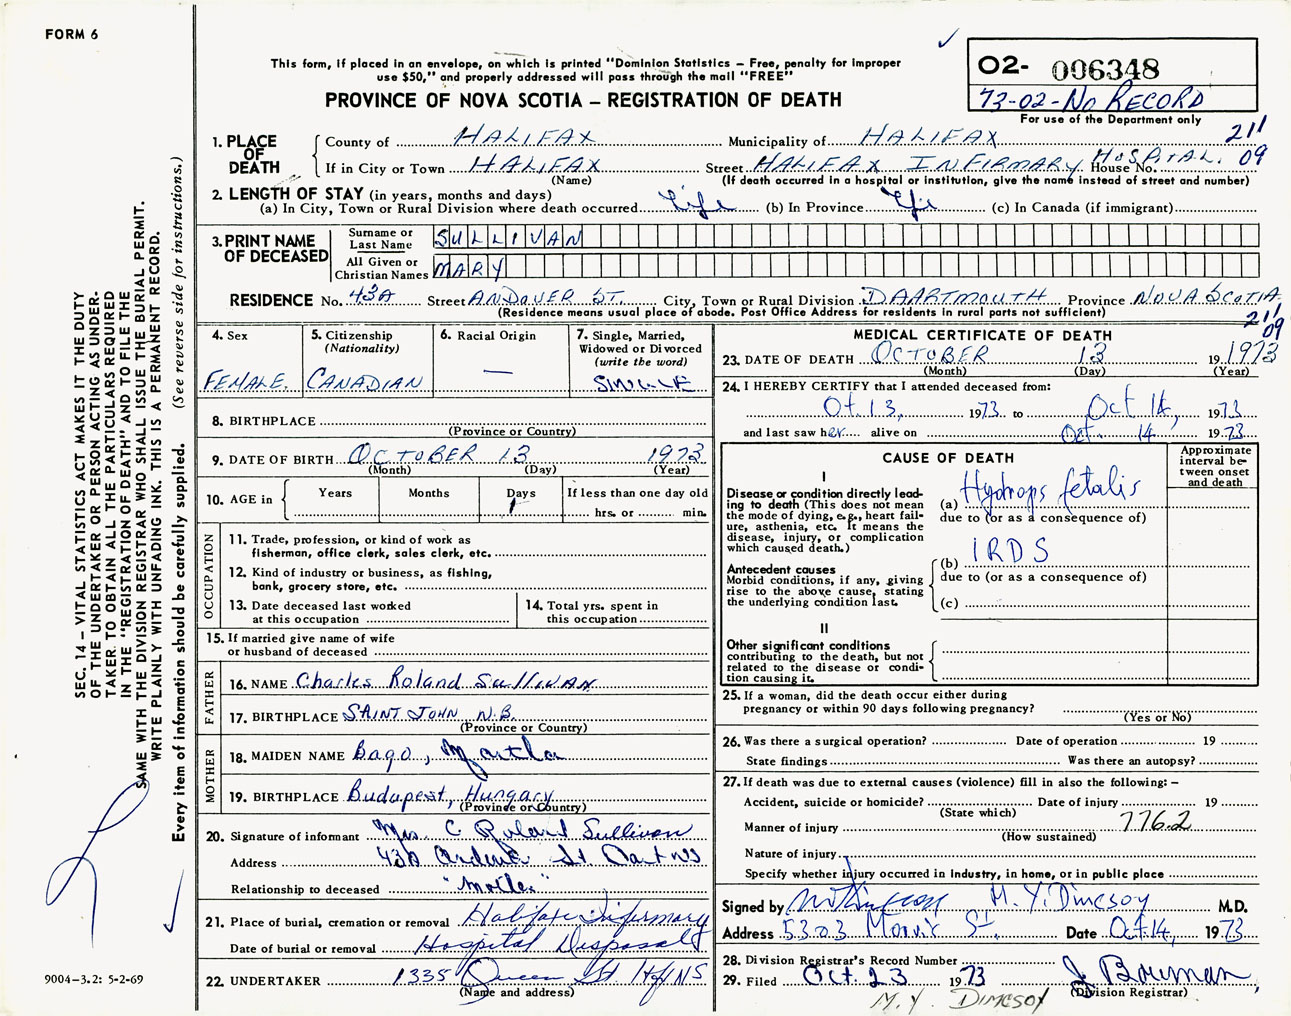 FORM 6
This form, if placed in an envelope, on which is printed "Dominion Statistics – Free, penalty for improper
use $50," and properly addressed will pass through the mail "FREE"
PROVINCE OF NOVA SCOTIA – REGISTRATION OF DEATH
02- 006348
73-02-No RECORD
For use of the Department only
211
09
1. PLACE OF DEATH
County of HALIFAX Municipality of HALIFAX
If in City or Town HALIFAX Street HALIFAX INFIRMARY HOSPITAL House No.
(Name) (If death occurred in a hospital or institution, give the name instead of street and number)
2. LENGTH OF STAY (in years, months and days)
(a) In City, Town or Rural Division where death occurred Life (b) In Province Life (c) In Canada (if immigrant)
3. PRINT NAME OF DECEASED
Surname or Last Name SULLIVAN
All Given or Christian Names MARY
RESIDENCE No. 43A Street ANDOVER ST. City, Town or Rural Division DAARTMOUTH Province NOVA SCOTIA
(Residence means usual place of abode. Post Office Address for residents in rural parts not sufficient)
211
09
4. Sex
FEMALE.
5. Citizenship
(Nationality)
CANADIAN
6. Racial Origin
—
7. Single, Married,
Widowed or Divorced
(write the word)
SINGLE
8. BIRTHPLACE
(Province or Country)
9. DATE OF BIRTH OCTOBER 13 1973
(Month) (Day) (Year)
10. AGE in Years Months Days If less than one day old
1 hrs. or min.
OCCUPATION
11. Trade, profession, or kind of work as
fisherman, office clerk, sales clerk, etc.
12. Kind of industry or business, as fishing,
bank, grocery store, etc.
13. Date deceased last worked
at this occupation
14. Total yrs. spent in
this occupation
15. If married give name of wife
or husband of deceased
FATHER
16. NAME Charles Roland Sullivan
17. BIRTHPLACE SAINT JOHN N.B.
(Province or Country)
MOTHER
18. MAIDEN NAME Bago, Martha
19. BIRTHPLACE Budapest, Hungary
(Province or Country)
20. Signature of informant Mrs. C Roland Sullivan
Address 43A St Dart NS
Relationship to deceased "Mother"
21. Place of burial, cremation or removal Halifax Infirmary
Date of burial or removal Hospital Disposal
22. UNDERTAKER 1335 Queen St Hfx NS
(Name and address)
MEDICAL CERTIFICATE OF DEATH
23. DATE OF DEATH OCTOBER 13 19 1973
(Month) (Day) (Year)
24. I HEREBY CERTIFY that I attended deceased from:
Ot. 13, 1973 to Oct 14, 1973
and last saw her alive on Oct. 14 1973
CAUSE OF DEATH
Approximate
interval be-
tween onset
and death
I
Disease or condition directly lead-
ing to death (This does not mean
the mode of dying, e.g., heart fail-
ure, asthenia, etc. It means the
disease, injury, or complication
which caused death.)
(a) Hydrops fetalis
due to (or as a consequence of)
Antecedent causes
Morbid conditions, if any, giving
rise to the above cause, stating
the underlying condition last.
(b) IRDS
due to (or as a consequence of)
(c)
II
Other significant conditions
contributing to the death, but not
related to the disease or condi-
tion causing it.
25. If a woman, did the death occur either during
pregnancy or within 90 days following pregnancy?
(Yes or No)
26. Was there a surgical operation? Date of operation 19
State findings Was there an autopsy?
27. If death was due to external causes (violence) fill in also the following: –
Accident, suicide or homicide? Date of injury 19
(State which)
Manner of injury 776.2
(How sustained)
Nature of injury
Specify whether injury occurred in Industry, in home, or in public place
Signed by M. Y. Dimcsoy M.D.
Address 5303 Morris St. Date Oct. 14, 1973
28. Division Registrar's Record Number
29. Filed Oct. 23 1973 J. Bowman
(Division Registrar)
M. Y. DIMCSOY
SEC. 14 – VITAL STATISTICS ACT MAKES IT THE DUTY
OF THE UNDERTAKER OR PERSON ACTING AS UNDER-
TAKER TO OBTAIN ALL THE PARTICULARS REQUIRED
IN THE "REGISTRATION OF DEATH" AND TO FILE THE
SAME WITH THE DIVISION REGISTRAR WHO SHALL ISSUE THE BURIAL PERMIT.
WRITE PLAINLY WITH UNFADING INK. THIS IS A PERMANENT RECORD.
Every item of information should be carefully supplied. (See reverse side for instructions.)
9004–3.2: 5-2-69